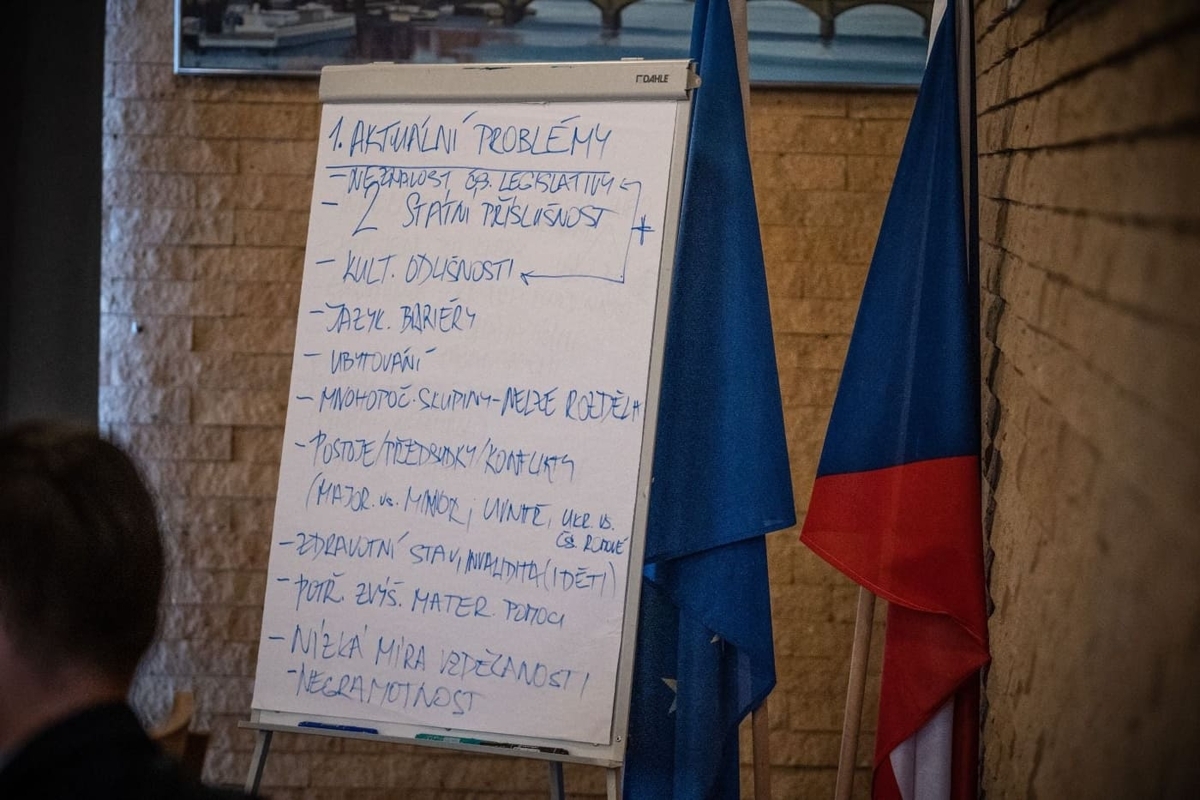 DAHLE
1. AKTUÁLNÍ PROBLÉMY
- NEZNALOST ČB. LEGISLATIVY
- 2 STÁTNÍ PŘÍSLUŠNOST
- KULT. ODLIŠNOSTI
- JAZYK. BARIÉRY
- UBYTOVÁNÍ
- MNOHOPOČ. SKUPINY - NELZE ROZDĚLIT
- POSTOJE/PŘEDSUDKY/KONFLIKTY
(MAJOR. vs. MINOR, UVNITŘ, UKR. VS.
ČS. ROMOVÉ
- ZDRAVOTNÍ STAV, INVALIDITA (I DĚTI)
- POTŘ. ZVÝŠ. MATER. POMOCI
- NÍZKÁ MÍRA VZDĚLANOSTI /
- NEGRAMOTNOST